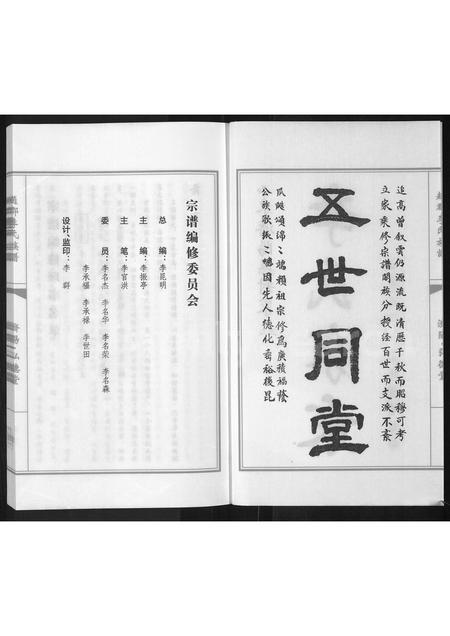 追高曾叙雲仍源流既清歷千秋而昭穆可考
立家乘修宗譜關族分授经百世而支派不紊
五世同堂
瓜瓞頌綿綿端賴祖宗修為廣積福蔭
公族歌振振總因先人德化垂裕後昆
宗谱编修委员会
总 编:李昆明
主 编:李振亭
主 笔:李百洪
委 员:李名杰 李名华 李名荣 李名森
李承福 李承禄 李世田
设计、监印:李 群